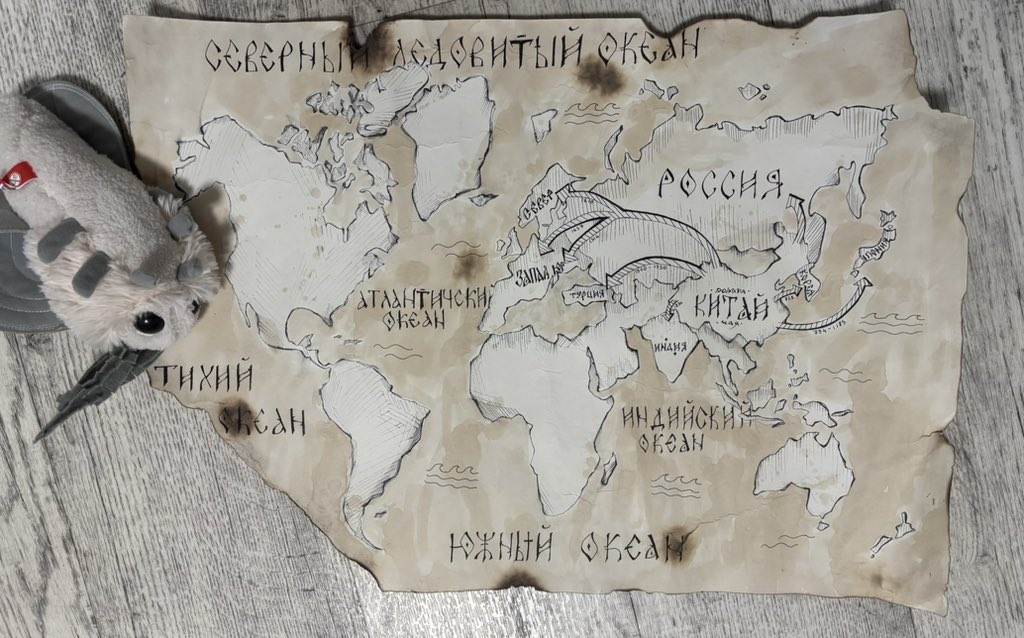 СЕВЕРНЫЙ ЛЕДОВИТЫЙ ОКЕАН
РОССИЯ
СЕВЕР
ЯПОНИЯ
ЗАПАД
ТУРЦИЯ
КИТАЙ
ЧАЯ
АТЛАНТИЧСКИЙ
ОКЕАН
ИНДИЯ
ТИХИЙ
ОКЕАН
ИНДИЙСКИЙ
ОКЕАН
ЮЖНЫЙ ОКЕАН